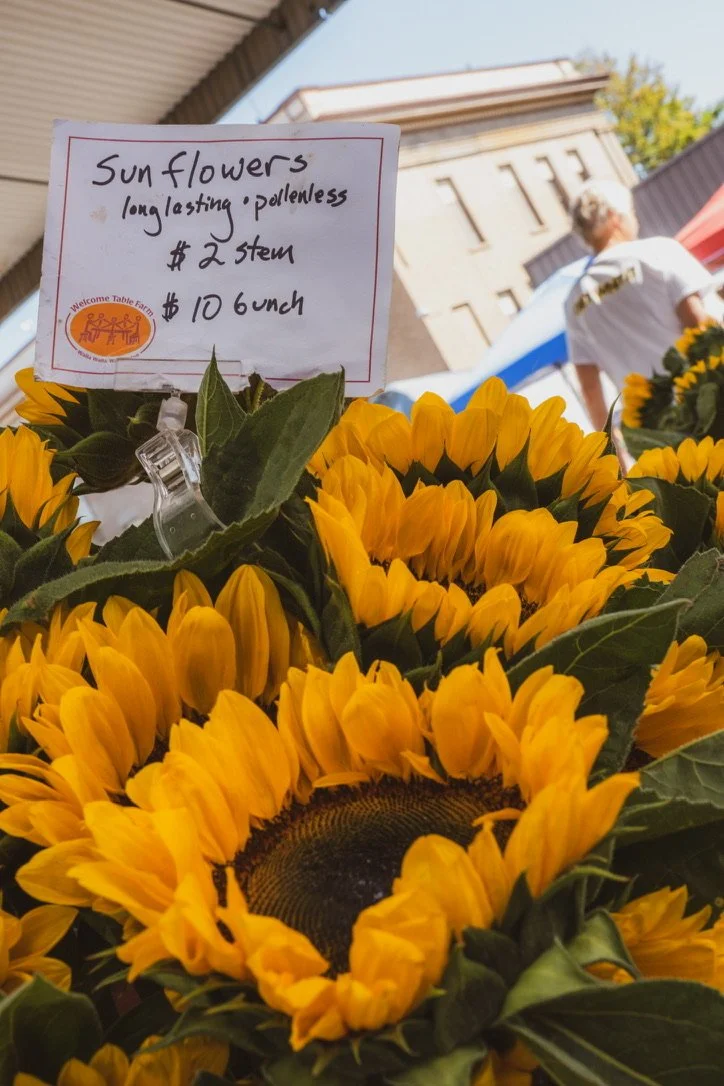 Sunflowers
longlasting • pollenless
$ 2 stem
$ 10 bunch
Welcome Table Farm